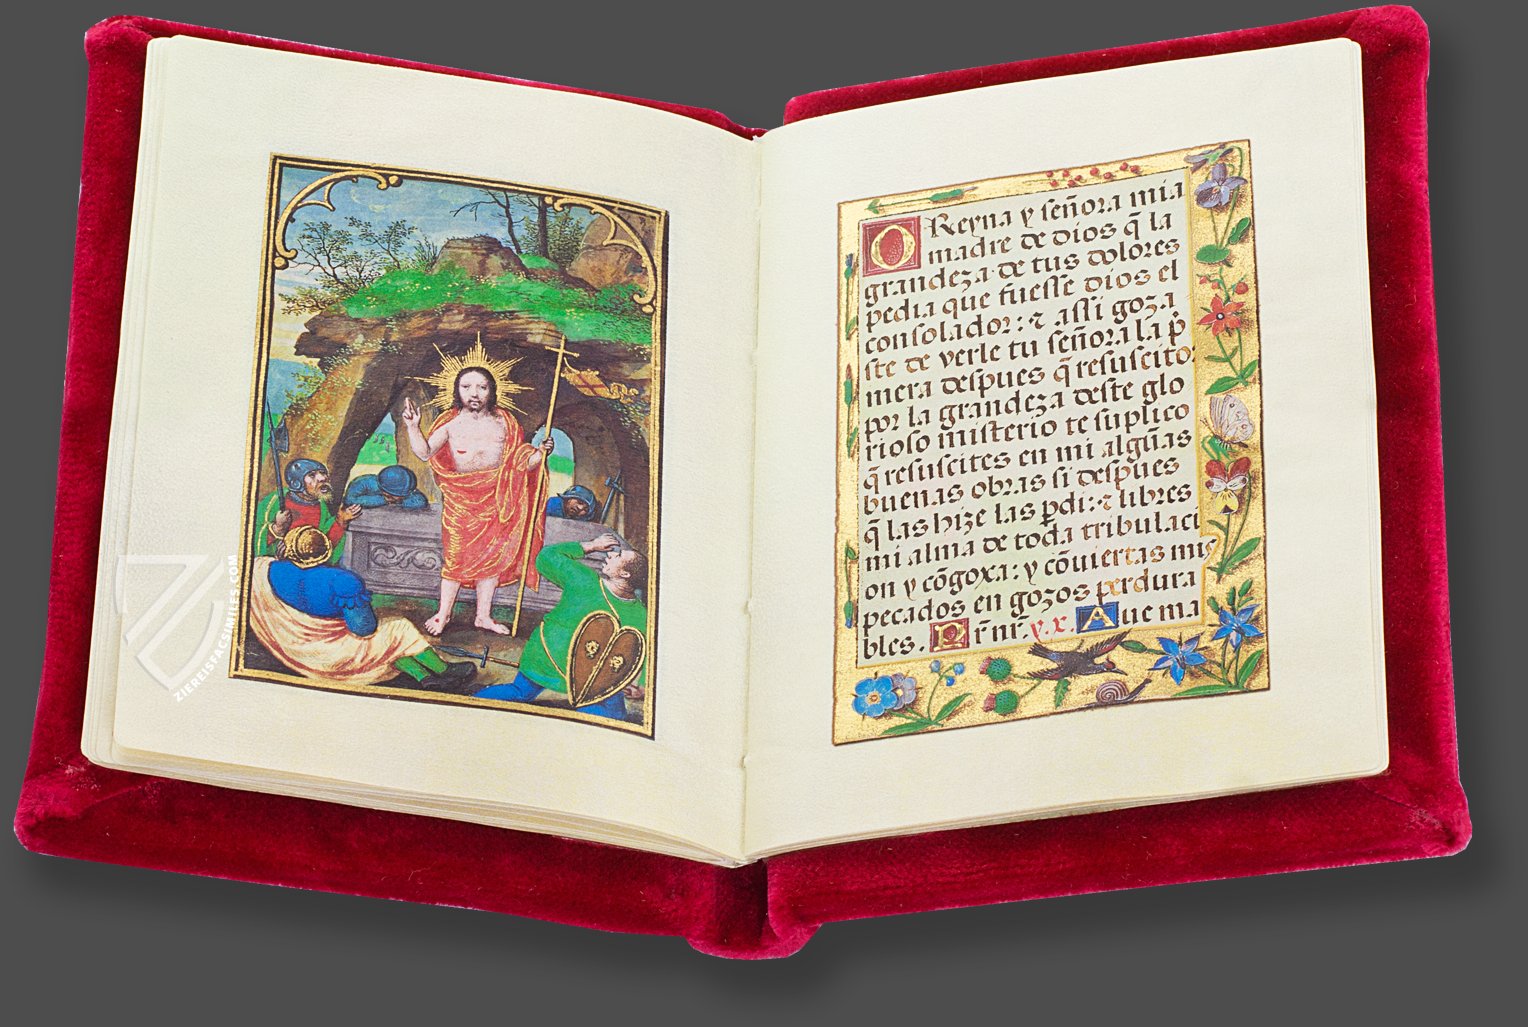 ZIEREISFACSIMILES.COM
O Reyna y señora mia
madre de dios q̃ la
grandeza de tus dolores
pedia que fuesse dios el
consolador: ⁊ assi goza
ste de verle tu señora la p̃
mera despues q̃ resuscito:
por la grandeza deste glo
rioso misterio te suplico
q̃ resuscites en mi algũas
buenas obras si despues
q̃ las hize las ꝑdi: ⁊ libres
mi alma de toda tribulaci
on y cõgoxa: y cõuiertas mis
pecados en gozos perdura
bles. P r̃nr̃. x.x. Aue ma